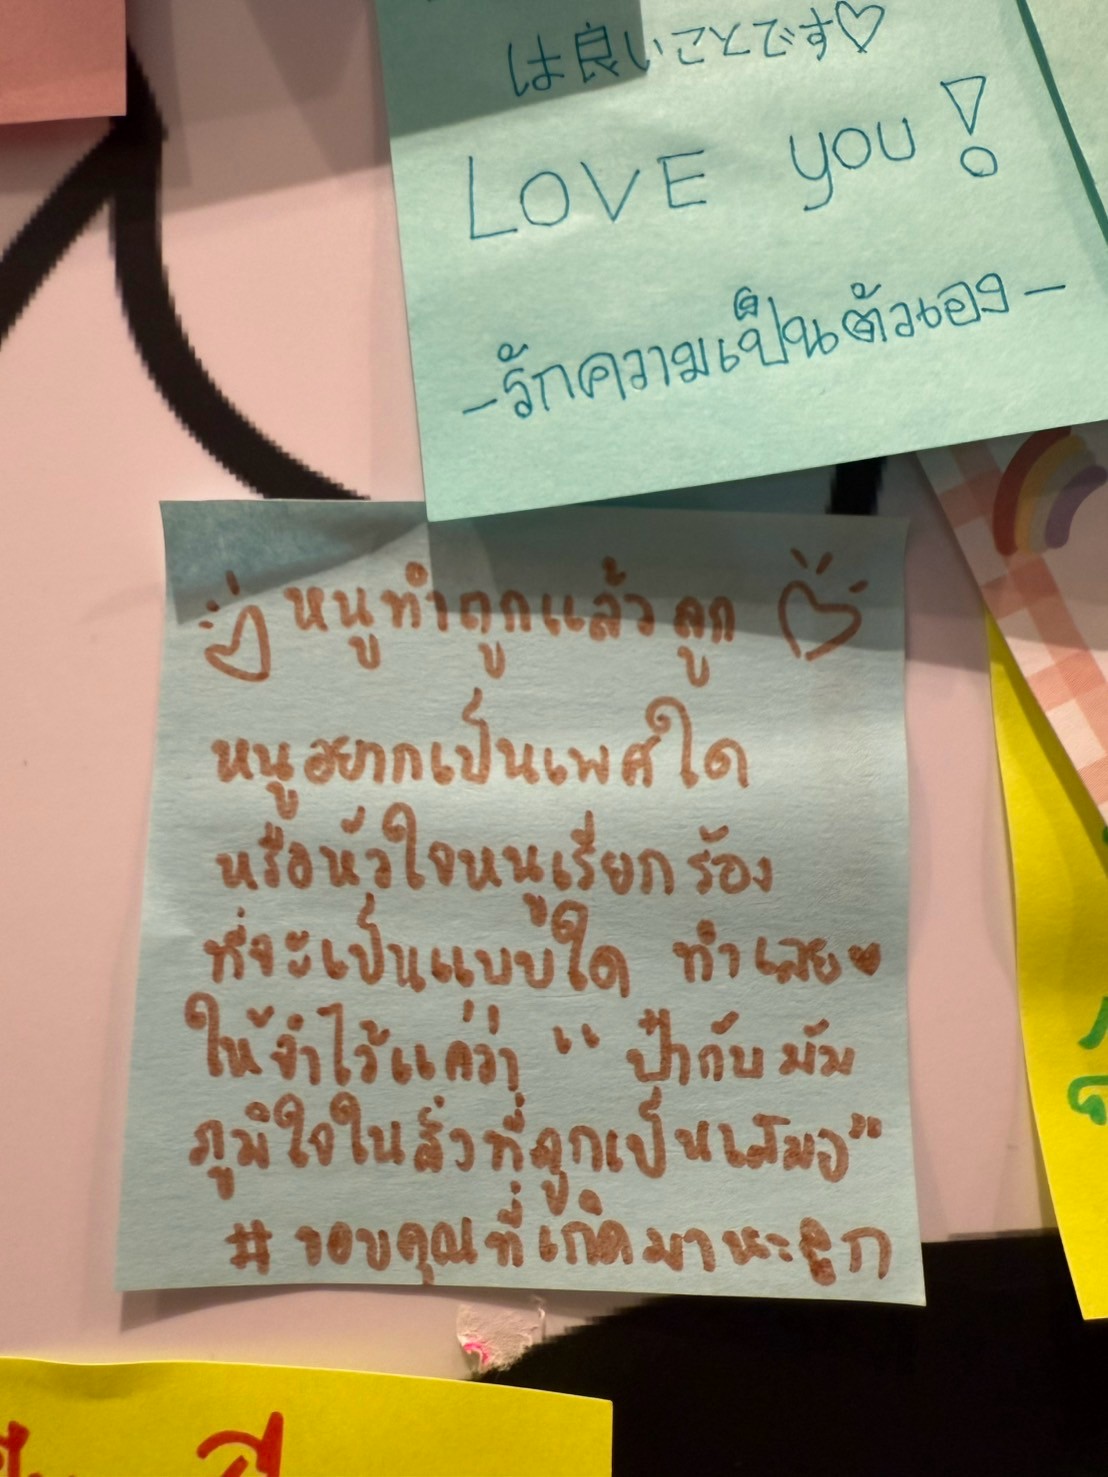 は良いことです♡
LOVE you!
-รักความเป็นตัวเอง-
หนูทำถูกแล้วลูก
หนูอยากเป็นเพศใด
หรือหัวใจหนูเรียกร้อง
ที่จะเป็นแบบใด ทำเลย♥
ให้จำไว้แค่ว่า "ป๊ากับมัม
ภูมิใจในสิ่งที่ลูกเป็นเสมอ"
#ขอบคุณที่เกิดมานะลูก